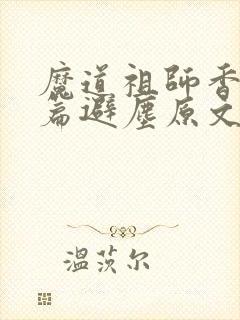 魔道祖師香
篇避塵原文
溫茨尔